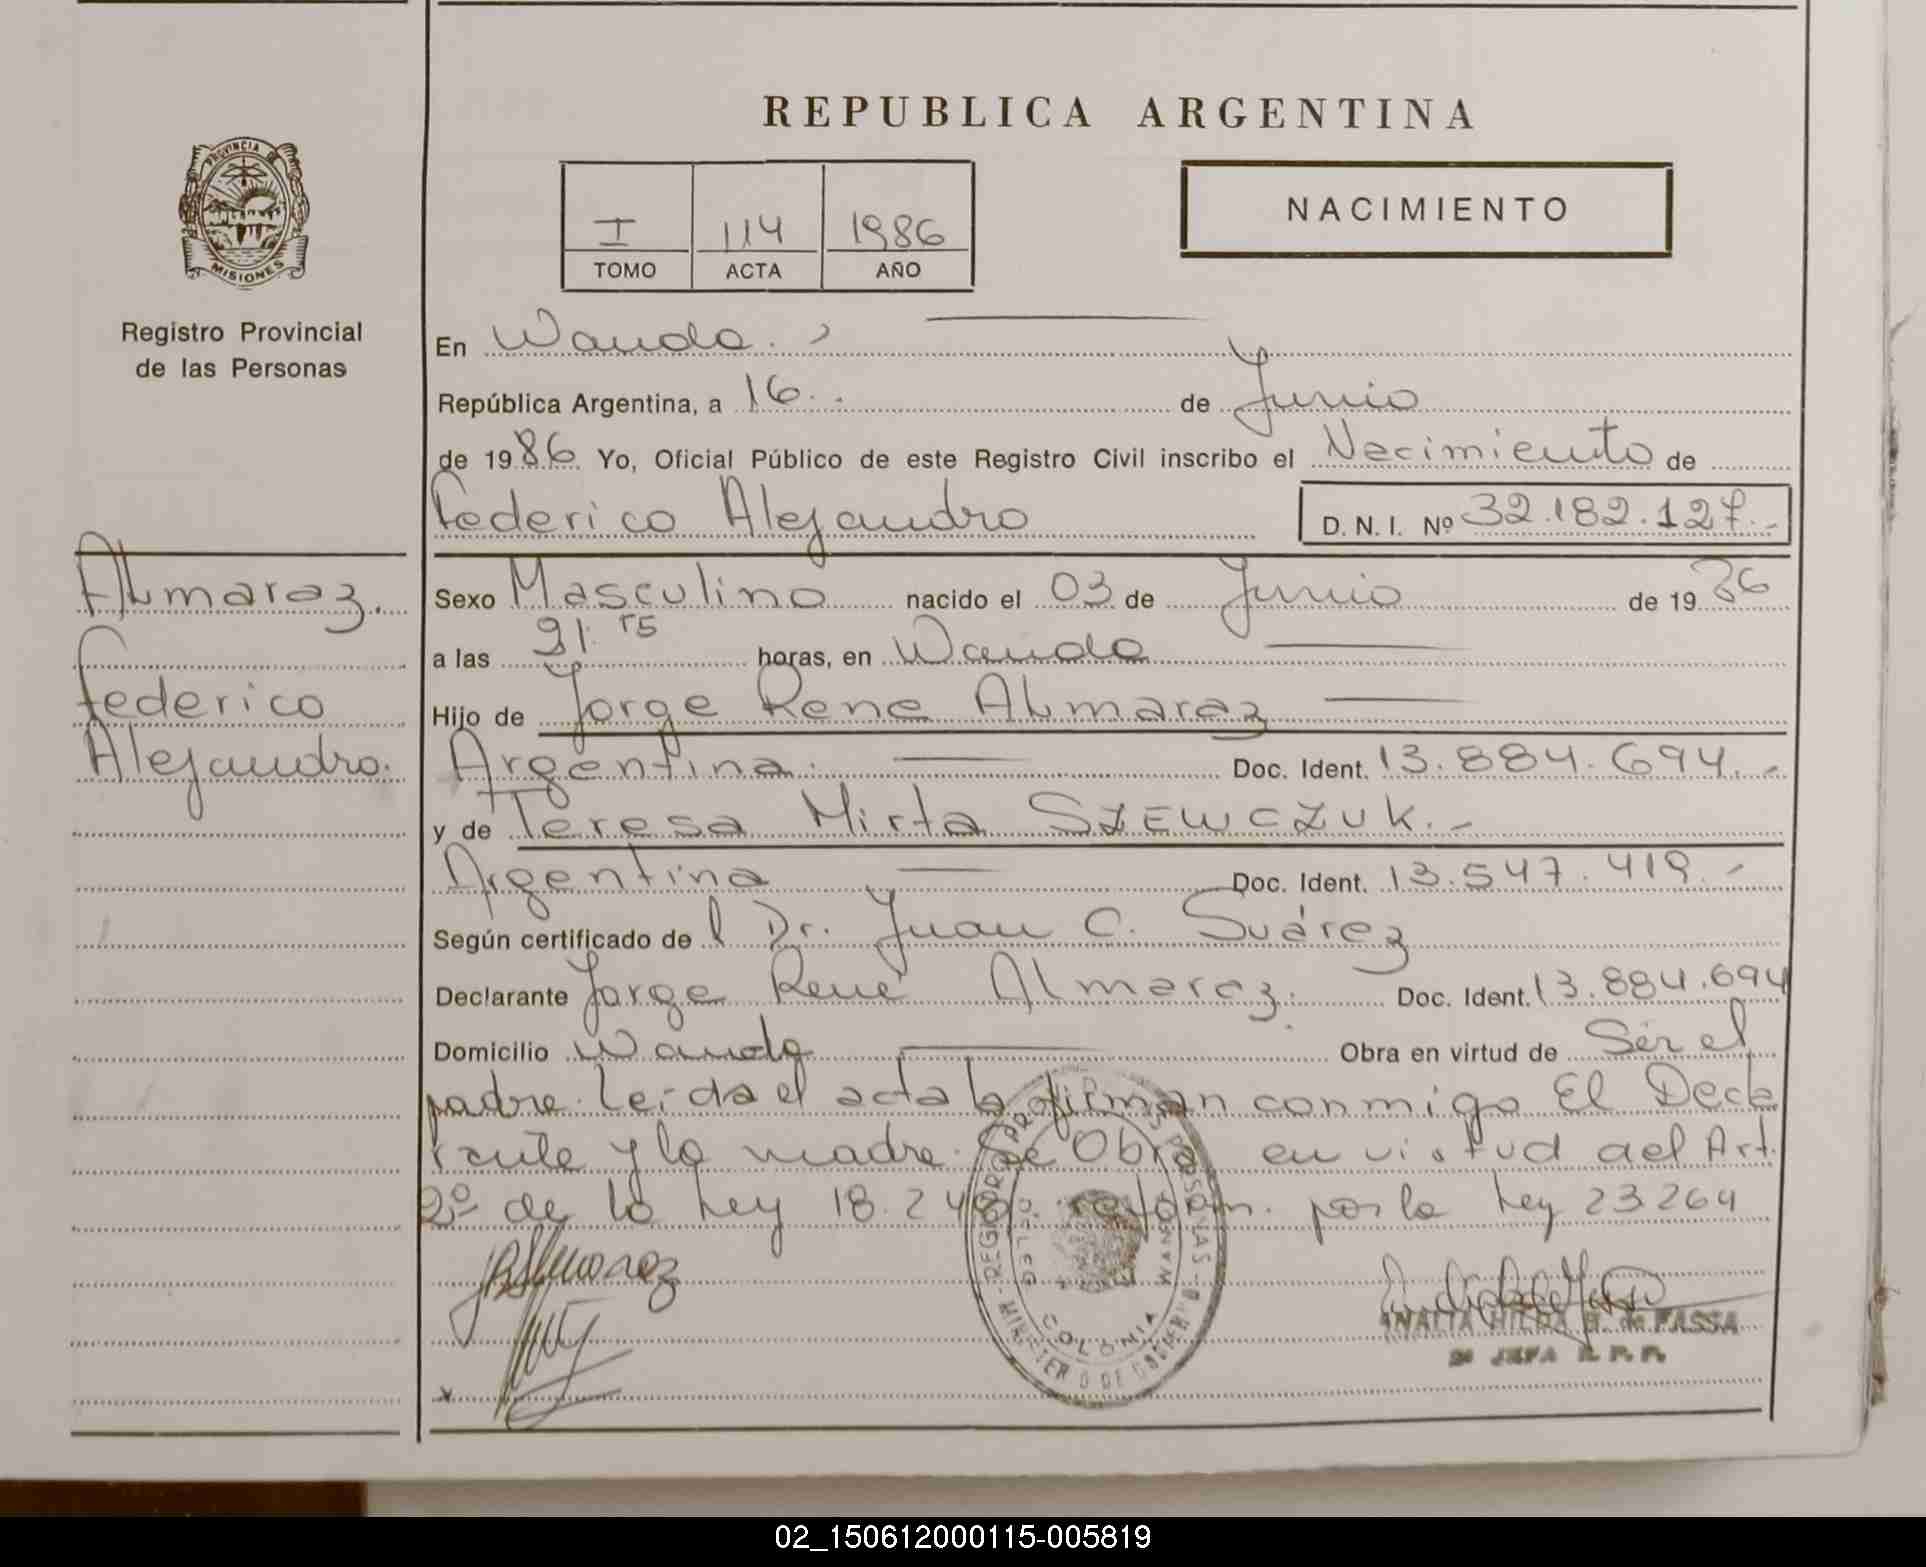 REPUBLICA ARGENTINA
PROVINCIA DE
MISIONES
Registro Provincial
de las Personas
I 114 1986
TOMO ACTA AÑO
NACIMIENTO
En Wanda.
República Argentina, a 16. de Junio
de 1986 Yo, Oficial Público de este Registro Civil inscribo el Nacimiento de
Federico Alejandro D. N. I. Nº 32.182.127.-
Almaraz.
Federico
Alejandro.
Sexo Masculino nacido el 03 de Junio de 1986
a las 21.15 horas, en Wanda
Hijo de Jorge Rene Almaraz
Argentina. Doc. Ident. 13.884.694.-
y de Teresa Mirta SZEWCZUK.-
Argentina Doc. Ident. 13.547.419.-
Según certificado de l Dr. Juan C. Suárez
Declarante Jorge René Almaraz. Doc. Ident. 13.884.694
Domicilio Wanda Obra en virtud de Ser el
padre. Leida el acta la firman conmigo El Decla
rante y la madre. Se Obra en virtud del Art.
2º de la Ley 18.248. reform. por la Ley 23.264
JRAlmaraz
REGISTRO PROV. DE LAS PERSONAS
DELEG. COLONIA WANDA
MINISTERIO DE GOBIERNO
ANALIA HILDA B. de FASSA
2ª JEFA R. P. P.
02_150612000115-005819